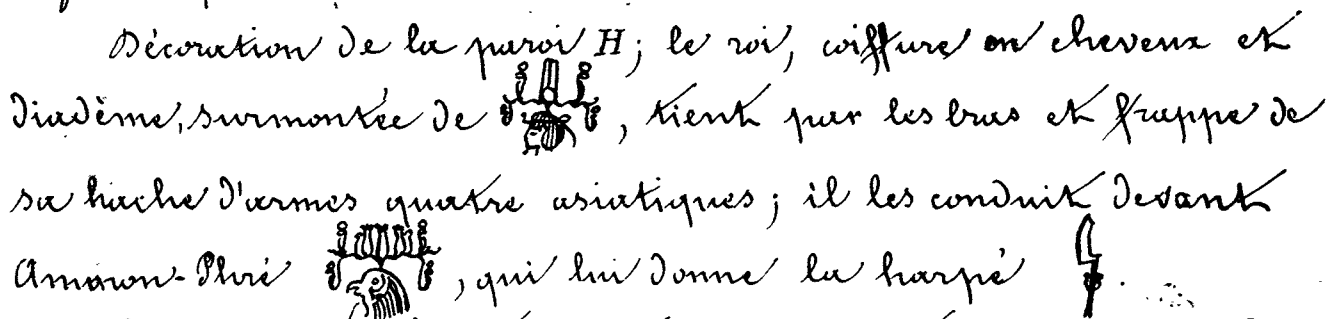 Décoration de la paroi H; le roi, coiffure en cheveux et
diadème, surmontée de , tient par les bras et frappe de
sa hache d'armes quatre asiatiques; il les conduit devant
Amon-Phré , qui lui donne la harpé .